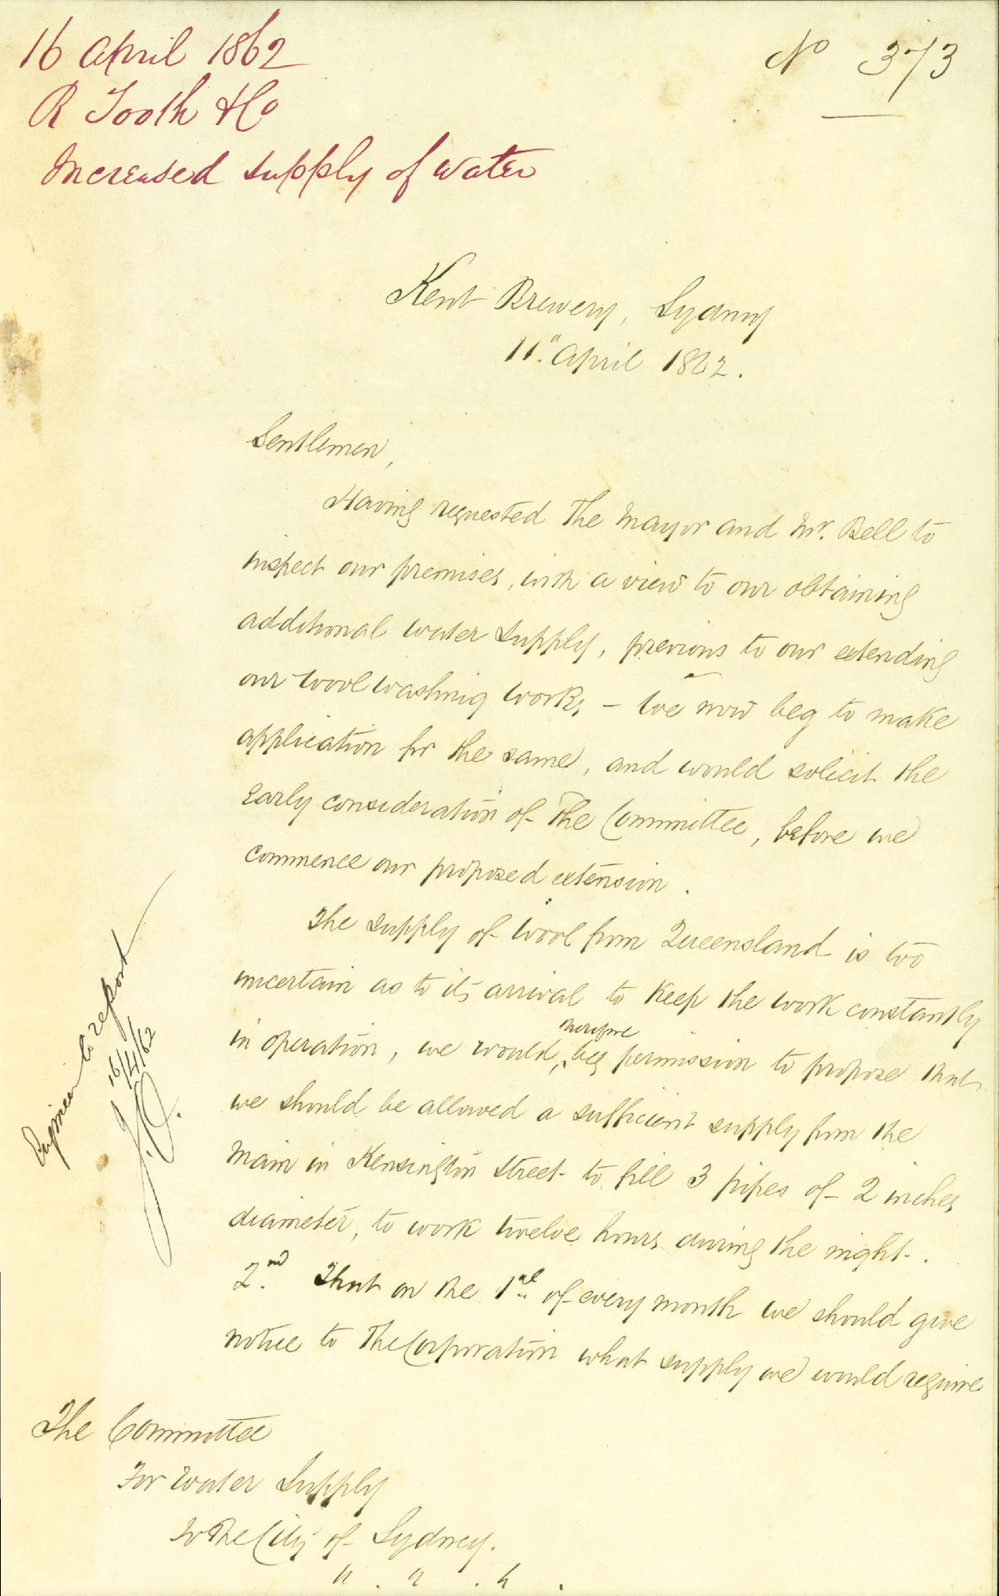 16 April 1862
R Tooth & Co
Increased supply of water
No 373
Kent Brewery, Sydney
11th April 1862.
Gentlemen,
Having requested The Mayor and Mr. Bell to
inspect our premises, with a view to our obtaining
additional water supply, previous to our extending
our wool washing works, – We now beg to make
application for the same, and would solicit the
early consideration of The Committee, before we
commence our proposed extension.
The supply of wool from Queensland is too
uncertain as to its arrival to keep the work constantly
in operation, we would, therefore beg permission to propose that
we should be allowed a sufficient supply from the
Main in Kensington Street to fill 3 pipes of 2 inches
diameter, to work twelve hours during the night.
2nd. That on the 1st of every month we should give
notice to The Corporation what supply we would require
Engineer to report
16/4/62
The Committee
For Water Supply
To The City of Sydney.
" . " . " .